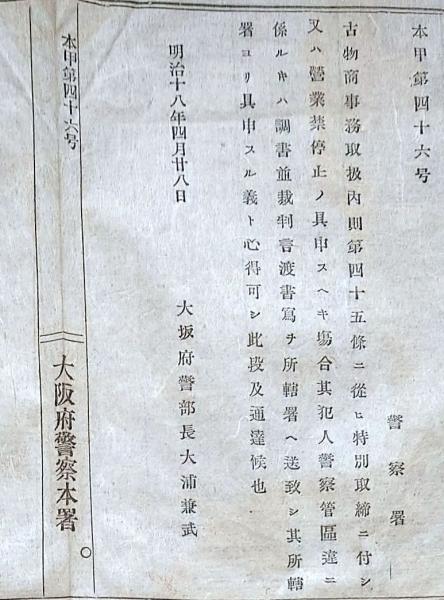 本甲第四十六号
警察署
古物商事務取扱內則第四十五條ニ從ヒ特別取締ニ付シ
又ハ營業禁停止ノ具申スヘキ塲合其犯人警察管區違ニ
係ルキハ調書並裁判言渡書寫ヲ所轄署ヘ送致シ其所轄
署ヨリ具申スル義ト心得可シ此段及通達候也
明治十八年四月廿八日
大坂府警部長大浦兼武
本甲第四十六号
大阪府警察本署